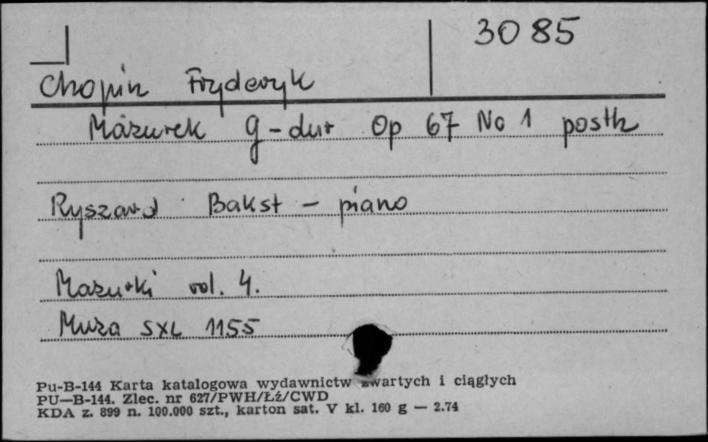 3085
Chopin Fryderyk
Mazurek g-dur Op 67 No 1 posth
Ryszard Bakst - piano
Mazurki vol. 4.
Muza SXL 1155
Pu-B-144 Karta katalogowa wydawnictw zwartych i ciągłych
PU—B-144. Zlec. nr 627/PWH/Łż/CWD
KDA z. 899 n. 100.000 szt., karton sat. V kl. 160 g — 2.74